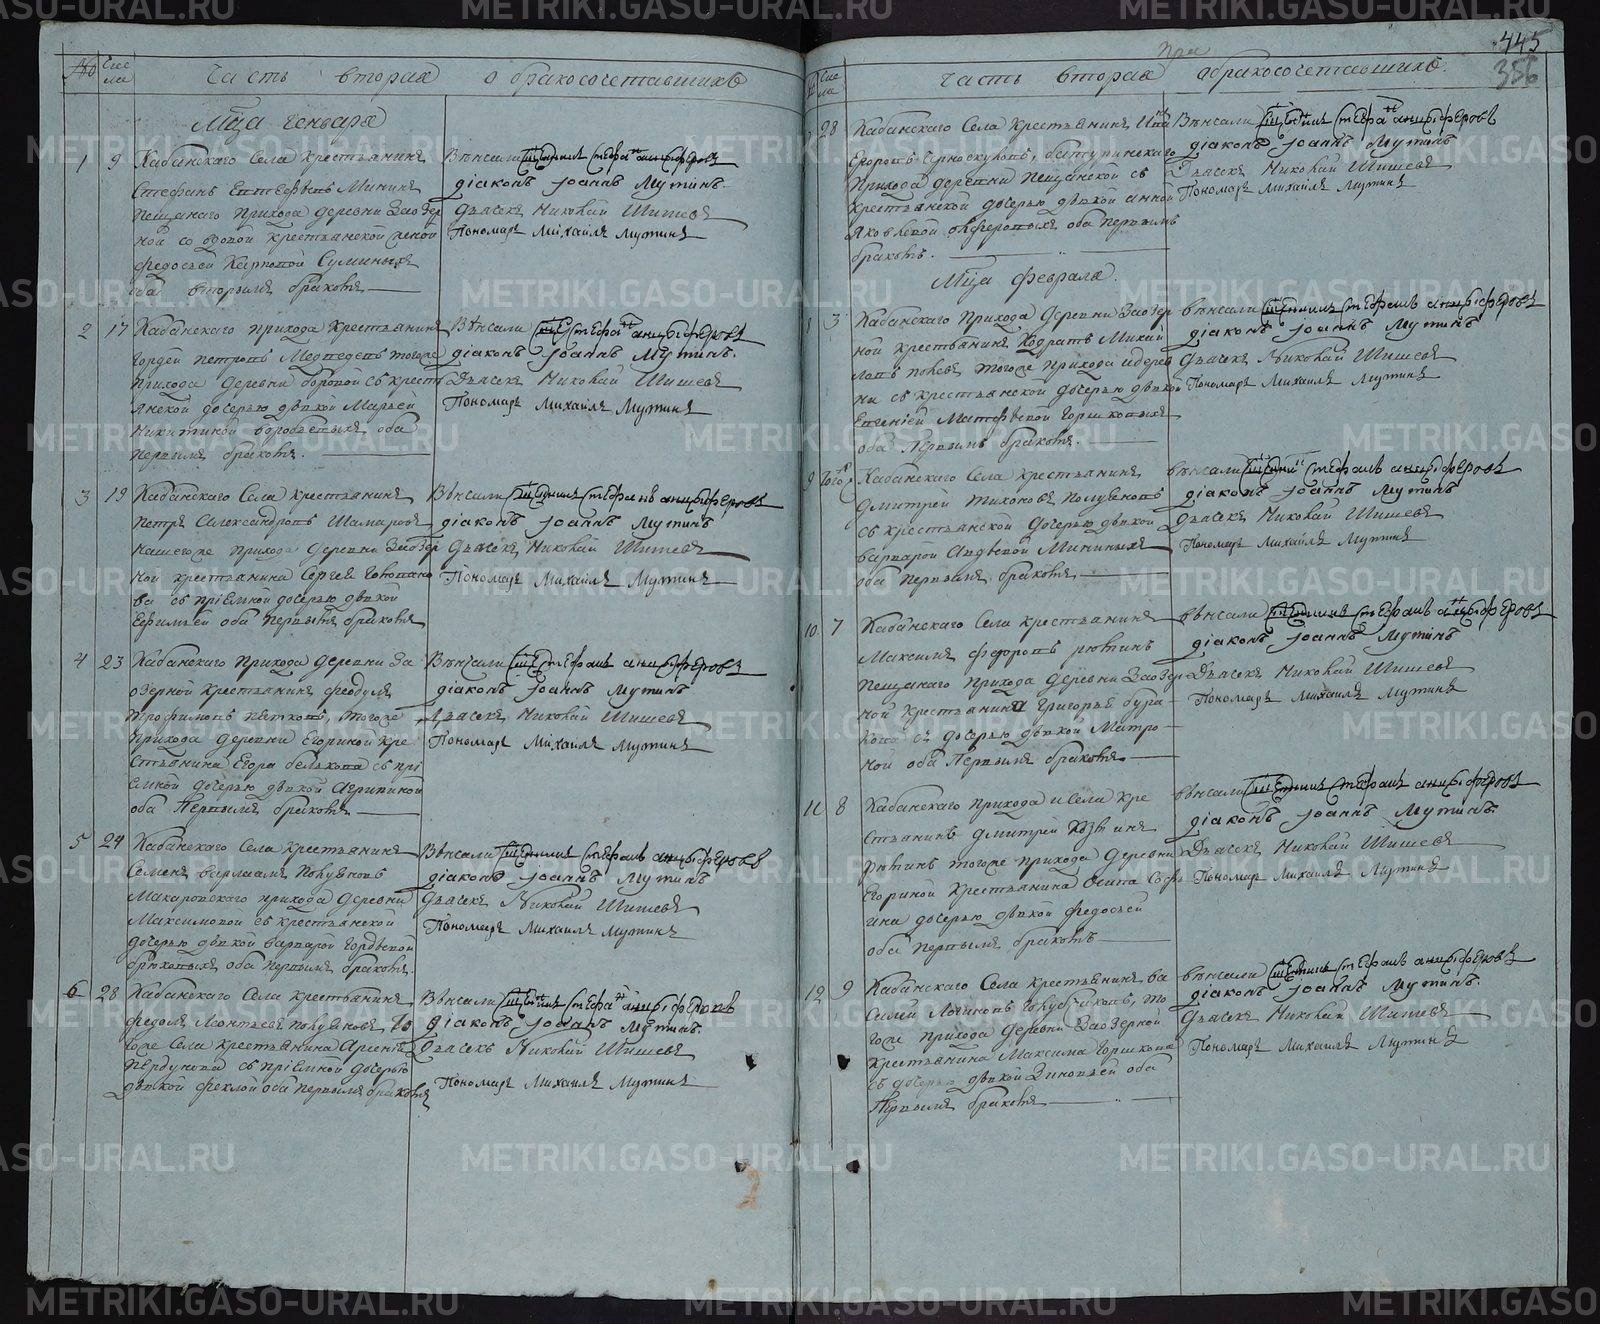 № Чис ла Часть вторая о бракосочетавшихъ
Мца Генваря
1 9 Кабанскаго Села крестьянинъ
Стефанъ Минин
Пещанаго прихода деревни Заозер
ной со вдовой крестьянской женой
федосьей Карповой Суминыхъ
оба вторымъ бракомъ
Венчали Священникъ Стефанъ Анцыферовъ
діаконъ Іоаннъ Мутинъ
Дьячекъ Николай Шишевъ
Пономарь Михаилъ Мутинъ
2 17 Кабанскаго прихода крестьянинъ
Гордей Петровъ Медведевъ тогоже
прихода деревни боровой съ кресть
янской дочерью девкой Марьей
Никитиной воробьевыхъ оба
первымъ бракомъ.
Венчали Свя: Стефанъ Анцыферовъ
діаконъ Іоаннъ Мутинъ.
Дьячекъ Николай Шишевъ
Пономарь Михаилъ Мутинъ
3 19 Кабанскаго Села крестьянинъ
Петръ Александровъ Шамаровъ
нашегоже прихода деревни Заозер
ной крестьянина Сергея
ва съ пріемной дочерью девкой
Ефимьей оба первымъ бракомъ
Венчали Священникъ Стефанъ Анцыферовъ
діаконъ Іоаннъ Мутинъ
Дьячекъ Николай Шишевъ
Пономарь Михаилъ Мутинъ
4 23 Кабанскаго прихода деревни За
озерной крестьянинъ феодулъ
Трофимовъ Пятковъ, тогоже
прихода деревни Егориной кре
стьянина Егора белькова съ прі
емной дочерью девкой Агрипиной
оба первымъ бракомъ
Венчали Свя: Стефанъ Анцыферовъ
діаконъ Іоаннъ Мутинъ
Дьячекъ Николай Шишевъ
Пономарь Михаилъ Мутинъ
5 24 Кабанскаго Села крестьянинъ
Семенъ варламъ
Макаровскаго прихода деревни
Максимовой съ крестьянской
дочерью девкой варварой Гордеевой
брюховыхъ оба первымъ бракомъ
Венчали Священникъ Стефанъ Анцыферовъ
діаконъ Іоаннъ Мутинъ.
Дьячекъ Николай Шишевъ
Пономарь Михаилъ Мутинъ
6 28 Кабанскаго Села крестьянинъ
федоръ Леонтьевъ то
гоже Села крестьянина Арсенія
Пердунова съ пріемной дочерью
девкой феклой оба первымъ бракомъ
Венчали Священ: Стефанъ Анцыферовъ
діаконъ Іоаннъ Мутинъ.
Дьячекъ Николай Шишевъ
Пономарь Михаилъ Мутинъ
445
356
Чис ла Часть вторая о бракосочетавшихъ.
28 Кабанскаго Села крестьянинъ
батуринскаго
прихода деревни Пещанской съ
крестьянской дочерью девкой анной
Яковлевой оба первымъ
бракомъ.
Венчали Священ: Стефанъ Анцыферовъ
діаконъ Іоаннъ Мутинъ
Дьячекъ Николай Шишевъ
Пономарь Михаилъ Мутинъ
Мца февраля.
3 Кабанскаго прихода деревни Заозер
ной крестьянинъ Кодратъ Михай
ловъ тогоже прихода и дерев
ни съ крестьянской дочерью девкой
Евгеніей Матфеевой Горшковыхъ
оба первымъ бракомъ.
венчали Священникъ Стефанъ Анцыферовъ
діаконъ Іоаннъ Мутинъ
Дьячекъ Николай Шишевъ
Пономарь Михаилъ Мутинъ
9 того ж Кабанскаго Села крестьянинъ
Дмитрей Тихоновъ Полуяновъ
съ крестьянской дочерью девкой
варварой Мининыхъ
оба первымъ бракомъ
венчали Священ: Стефанъ Анцыферовъ
діаконъ Іоаннъ Мутинъ
Дьячекъ Николай Шишевъ
Пономарь Михаилъ Мутинъ
10. 7 Кабанскаго Села крестьянинъ
Максимъ федоровъ рютинъ
Пещанаго прихода деревни Заозер
ной крестьянина Григорья бура
кова съ дочерью девкой Матро
ной оба первымъ бракомъ.
венчали Священникъ Стефанъ Анцыферовъ
діаконъ Іоаннъ Мутинъ
Дьячекъ Николай Шишевъ
Пономарь Михаилъ Мутинъ
11 8 Кабанскаго прихода и Села кре
стьянинъ Дмитрей
рютинъ тогоже прихода деревни
Егориной крестьянина Осипа Софь
ина дочерью девкой федосьей
оба первымъ бракомъ
венчали Священникъ Стефанъ Анцыферовъ
діаконъ Іоаннъ Мутинъ.
Дьячекъ Николай Шишевъ
Пономарь Михаилъ Мутинъ
12 9 Кабанскаго Села крестьянинъ ва
силей Логиновъ то
гоже прихода деревни Заозерной
крестьянина Максима Горшкова
съ дочерью девкой Зиновьей оба
первымъ бракомъ
венчали Священникъ Стефанъ Анцыферовъ
діаконъ Іоаннъ Мутинъ.
Дьячекъ Николай Шишевъ
Пономарь Михаилъ Мутинъ
2
METRIKI.GASO-URAL.RU